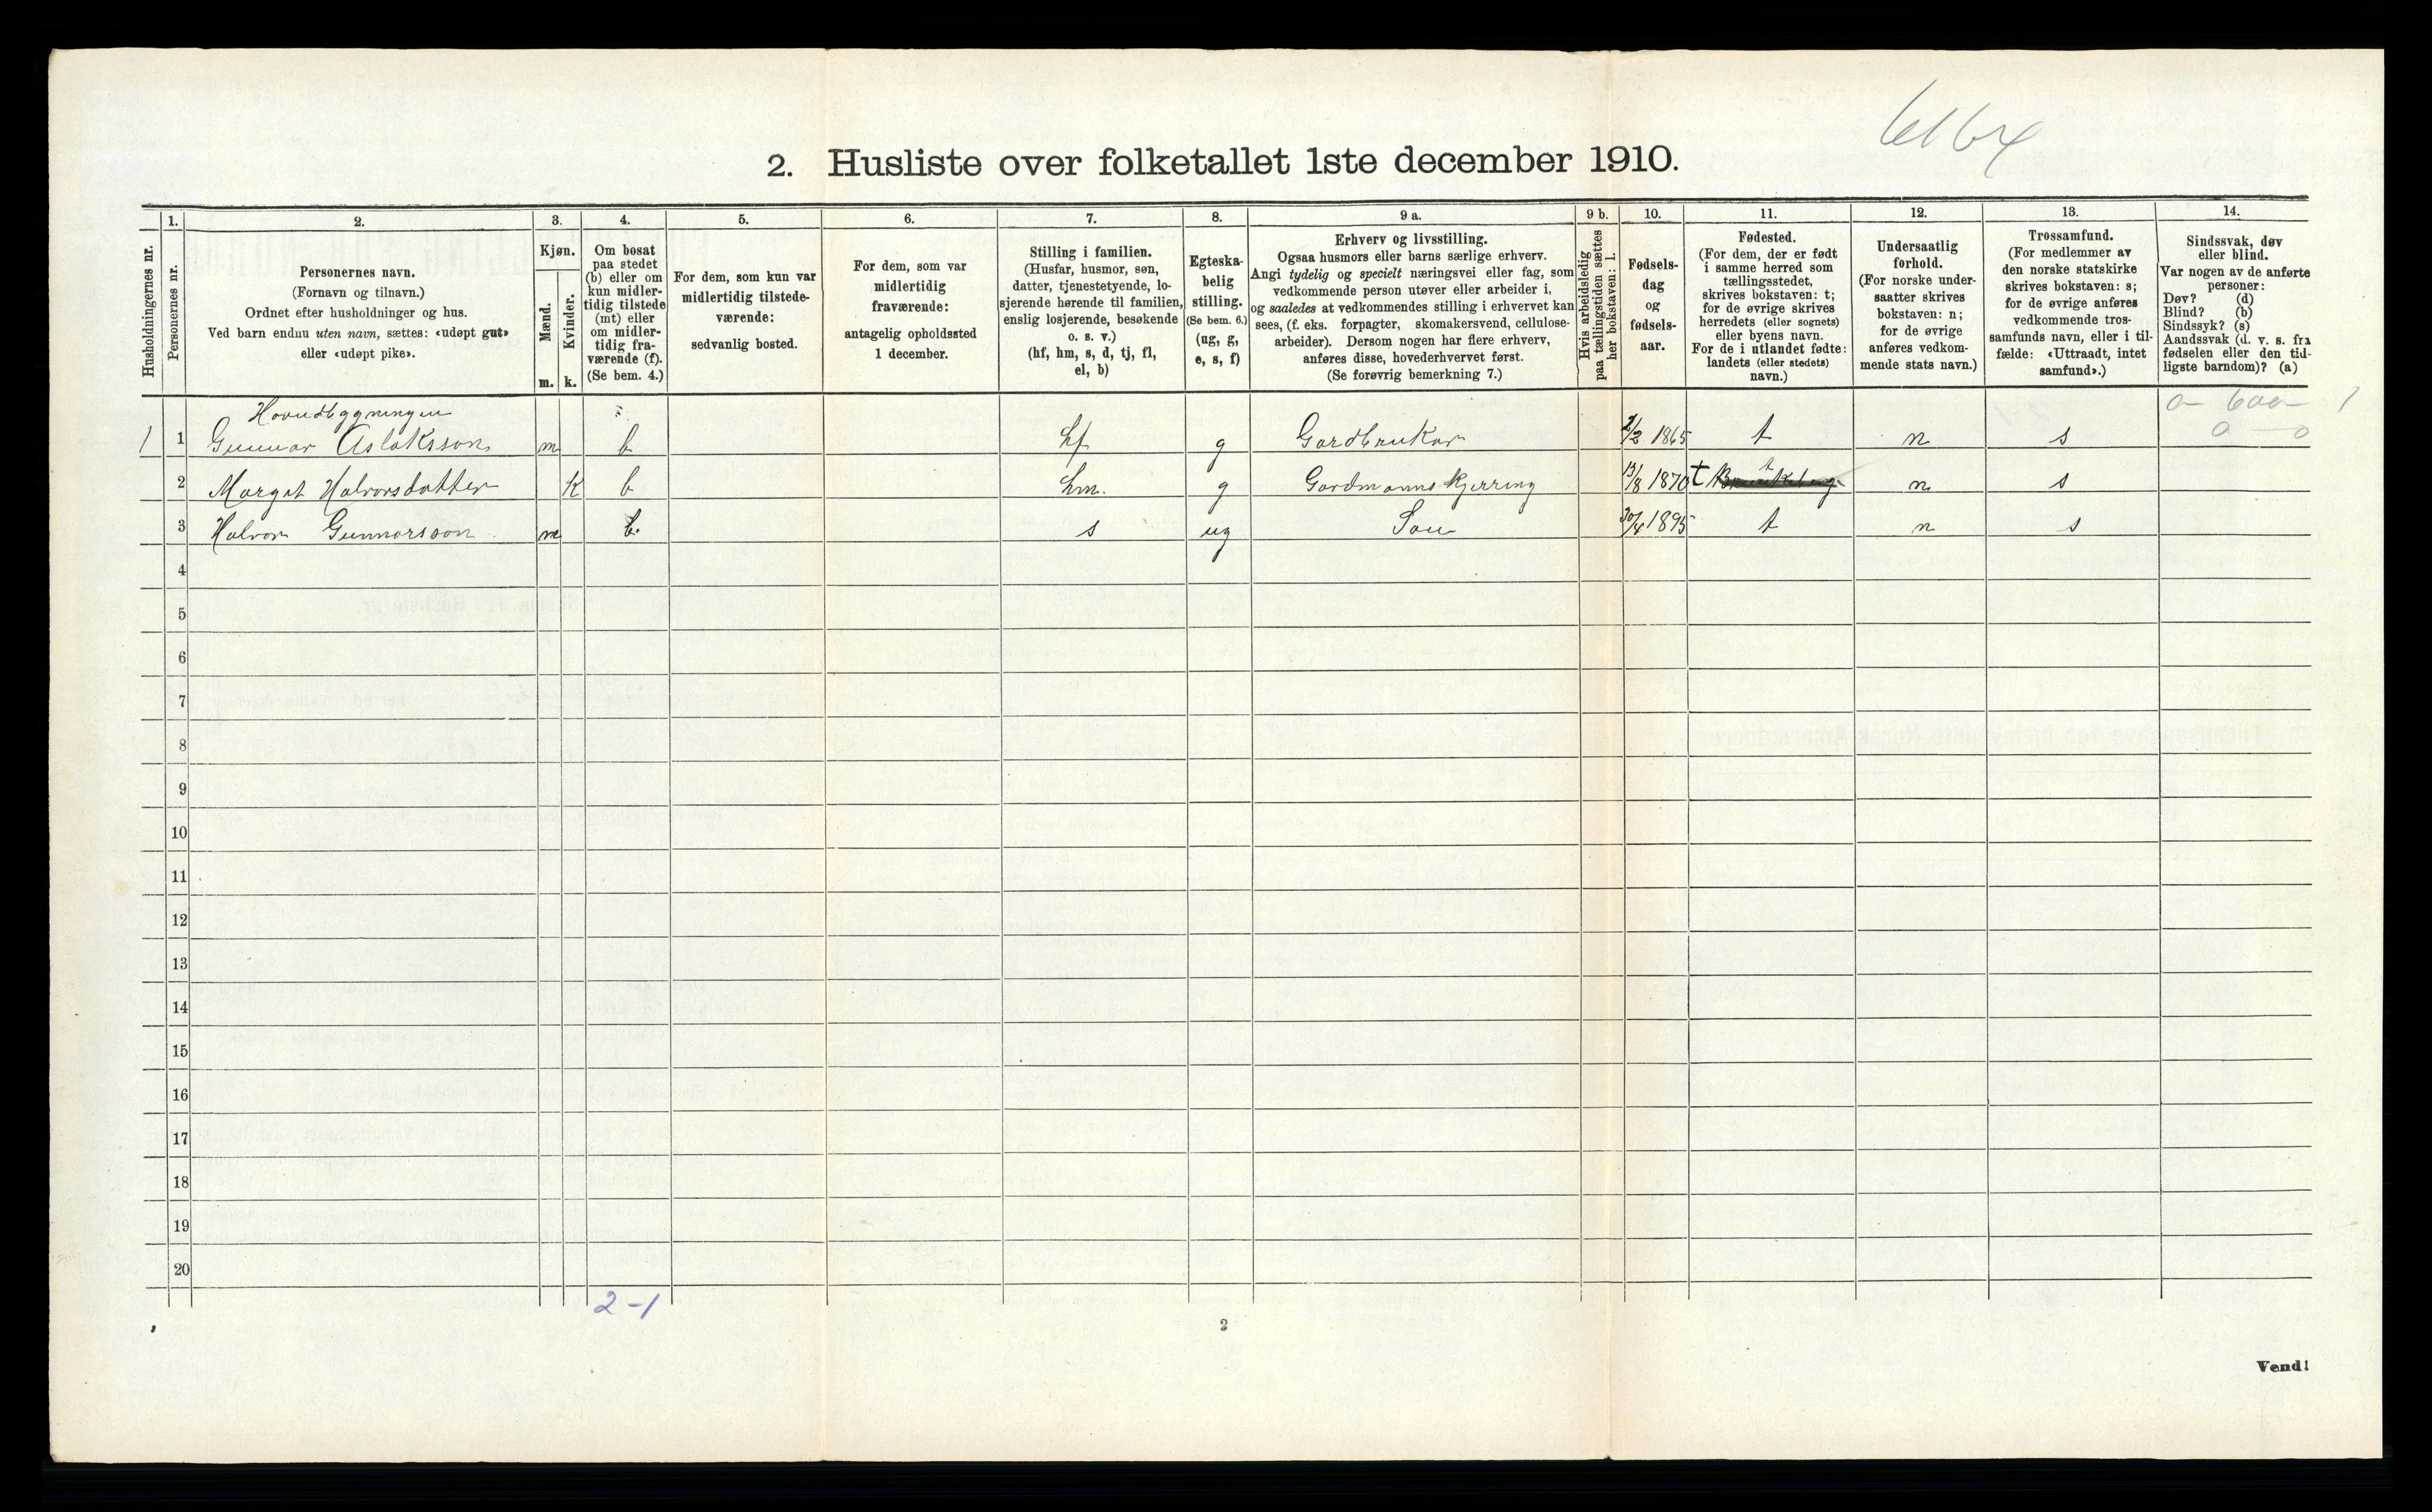 6164
2. Husliste over folketallet 1ste december 1910.
Husholdningernes nr.
1.
Personernes nr.
2.
Personernes navn.
(Fornavn og tilnavn.)
Ordnet efter husholdninger og hus.
Ved barn endnu uten navn, sættes: «udøpt gut»
eller «udøpt pike».
3.
Kjøn.
Mænd.
Kvinder.
m. k.
4.
Om bosat
paa stedet
(b) eller om
kun midler-
tidig tilstede
(mt) eller
om midler-
tidig fra-
værende (f).
(Se bem. 4.)
5.
For dem, som kun var
midlertidig tilstede-
værende:
sedvanlig bosted.
6.
For dem, som var
midlertidig
fraværende:
antagelig opholdssted
1 december.
7.
Stilling i familien.
(Husfar, husmor, søn,
datter, tjenestetyende, lo-
sjerende hørende til familien,
enslig losjerende, besøkende
o. s. v.)
(hf, hm, s, d, tj, fl,
el, b)
8.
Egteska-
belig
stilling.
(Se bem. 6.)
(ug, g,
e, s, f)
9 a.
Erhverv og livsstilling.
Ogsaa husmors eller barns særlige erhverv.
Angi tydelig og specielt næringsvei eller fag, som
vedkommende person utøver eller arbeider i,
og saaledes at vedkommendes stilling i erhvervet kan
sees, (f. eks. forpagter, skomakersvend, cellulose-
arbeider). Dersom nogen har flere erhverv,
anføres disse, hovederhvervet først.
(Se forøvrig bemerkning 7.)
9 b.
Hvis arbeidsledig
paa tællingstiden sættes
her bokstaven: l.
10.
Fødsels-
dag
og
fødsels-
aar.
11.
Fødested.
(For dem, der er født
i samme herred som
tællingsstedet,
skrives bokstaven: t;
for de øvrige skrives
herredets (eller sognets)
eller byens navn.
For de i utlandet fødte:
landets (eller stedets)
navn.)
12.
Undersaatlig
forhold.
(For norske under-
saatter skrives
bokstaven: n;
for de øvrige
anføres vedkom-
mende stats navn.)
13.
Trossamfund.
(For medlemmer av
den norske statskirke
skrives bokstaven: s;
for de øvrige anføres
vedkommende tros-
samfunds navn, eller i til-
fælde: «Uttraadt, intet
samfund».)
14.
Sindssvak, døv
eller blind.
Var nogen av de anførte
personer:
Døv? (d)
Blind? (b)
Sindssyk? (s)
Aandssvak (d. v. s. fra
fødselen eller den tid-
ligste barndom)? (a)
Hovudbygningen
0 - 600 - 1
0 - 0
1 1 Gunnar Aslaksson m b hf g Gardbrukar 2/2 1865 t n s
2 Margit Halvorsdatter K b hm. g Gardmannskjerring 13/8 1870 t t n s
3 Halvor Gunnarsson m b. s ug Son 30/4 1895 t n s
4
5
6
7
8
9
10
11
12
13
14
15
16
17
18
19
20
2-1
2
Vend!